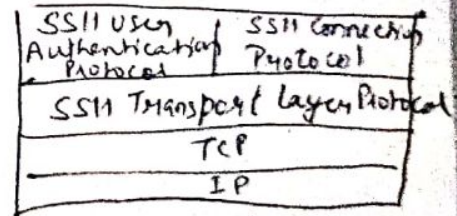 SSH User
Authentication
Protocol
SSH Connection
Protocol
SSH Transport Layer Protocol
TCP
IP